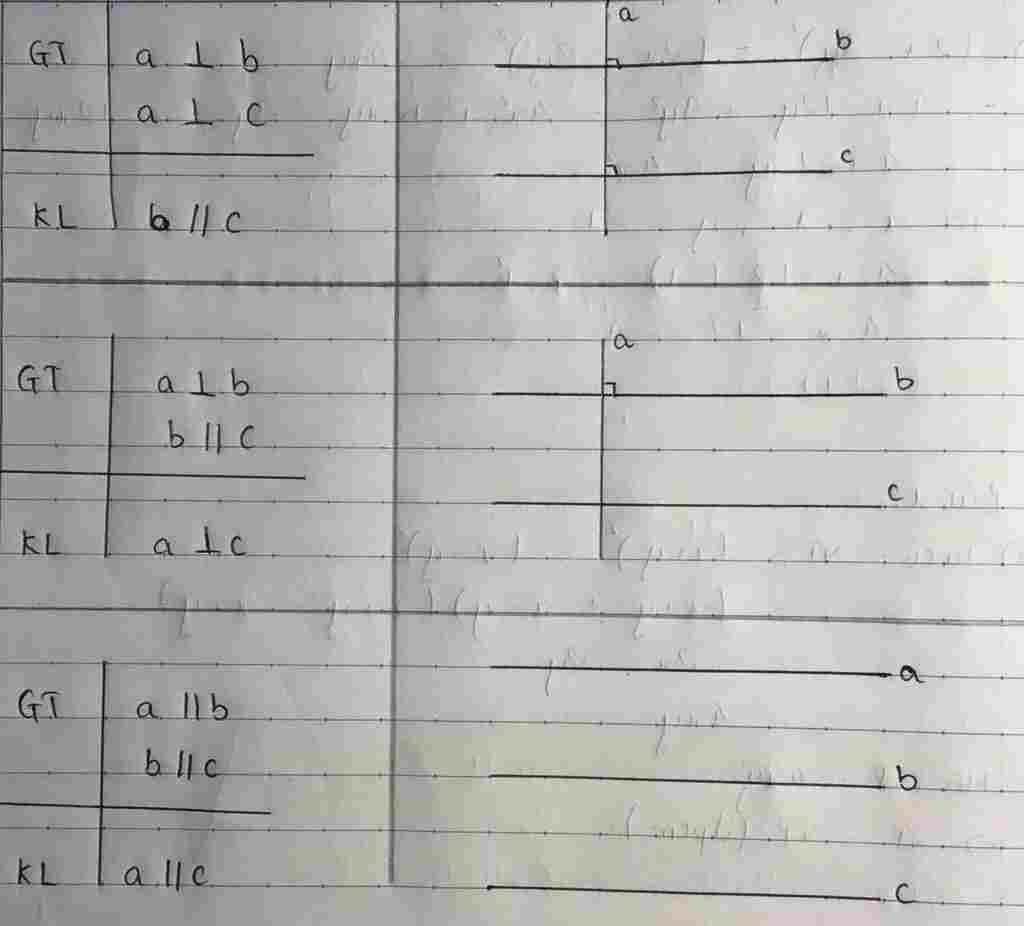 GT a ⊥ b
a ⊥ c
KL b // c
a
b
c
GT a ⊥ b
b // c
KL a ⊥ c
a
b
c
GT a // b
b // c
KL a // c
a
b
c